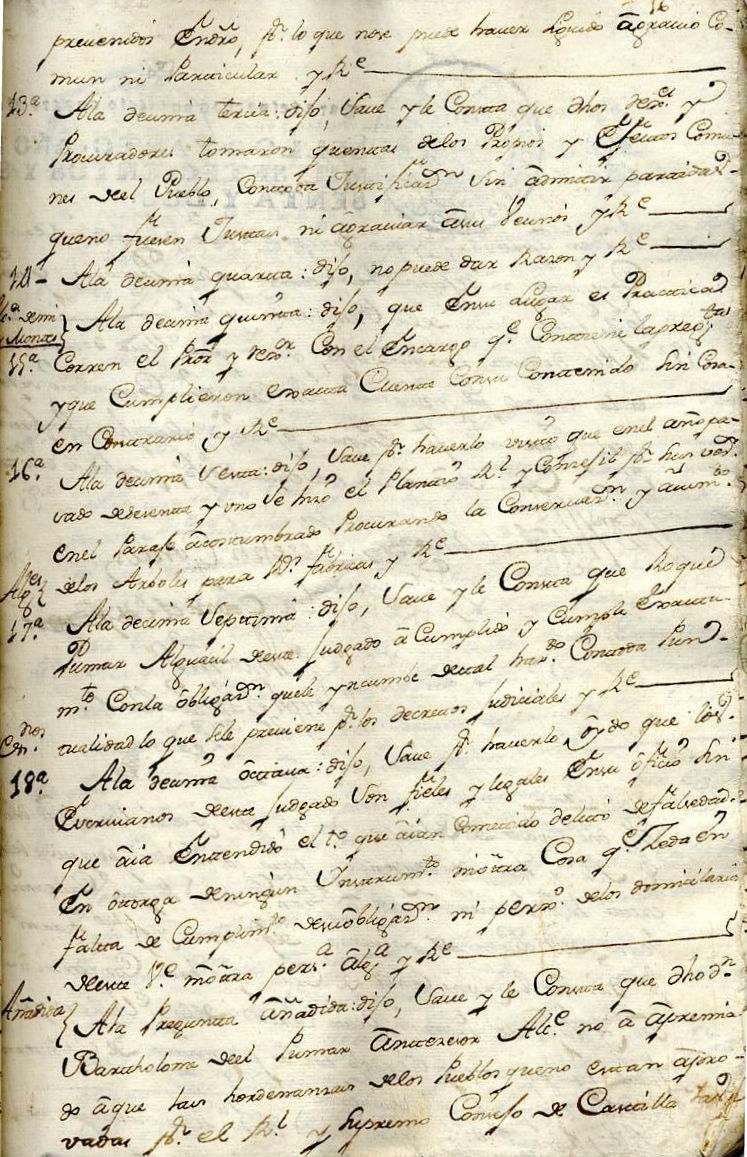 prevenidos En dro, pr. lo que nose puede haver seguido agravio Co-
mun ni Particular y Re
13a. Ala decima tercia: dijo, Save y le Consta que dhos y
Procuradores tomaron quentas delos Propios y Efectos Comu-
nes deel Pueblo, Contoda Justificazn. sin admitir partidas
queno fuesen Justas ni agraviar asus Vecinos y Re
14- Ala decima quarta: dijo, no puede dar Razon y Re
de mi
y Montes
Ala decima quinta: dijo, que Ensu Lugar es Practica
15a. Corren el Pror. y Con el Encargo qe. Contiene la pregta.
y que Cumplieron exacta Cuenta Consu Contenido sin Cosa
en Contrario y Re
16a. Ala decima sesta: dijo, Save pr. haverlo visto que enel año pa-
sado desesenta y uno se hizo el Plantio Rl. y Consejil pr. sus
enel Paraje acostumbrado Procurando la Conservazn. y aumto.
delos Arboles para Rs. fabricas y Re
17a. Ala decima septima: dijo, Save y le Consta que Roque
Pumar Alguacil deeste Judgado a Cumplido y Cumple Exacta-
mte. Conla obligazn. quele yncumbe Contoda Pun-
tualidad lo que sele previene pr. los decretos Judiciales y Re
18a. Ala decima octava: dijo, Save pr. haverlo oydo que los
Escrivanos deeste Judgado son fieles y legales Ensu oficio sin
que aia Entendido el to. que aian Cometido delito de falsedad
En otorga deningun Instrumto. ni otra Cosa qe. Zeda en
falta de Cumplimto. desuobligazn. ni perxo. delos domiciliarios
deeste Ve. ni otra persa. alga. y Re
Añadida
Ala Pregunta añadida: dijo, Save y le Consta que dho dn.
Bartholome deel Pumar Anterior Alce. no a apremia-
do aque las hordenanzas delos Pueblos queno estan apro-
vadas pr. el Rl. y Supremo Consejo de Castilla